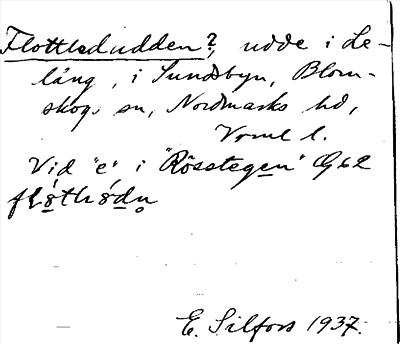 Flottledudden?, udde i Le-
lång, i Sundsbyn, Blom-
skogs sn, Nordmarks hd,
Vrml l.
Vid "e" i "Rösstegen" G62
E. Silfors 1937.